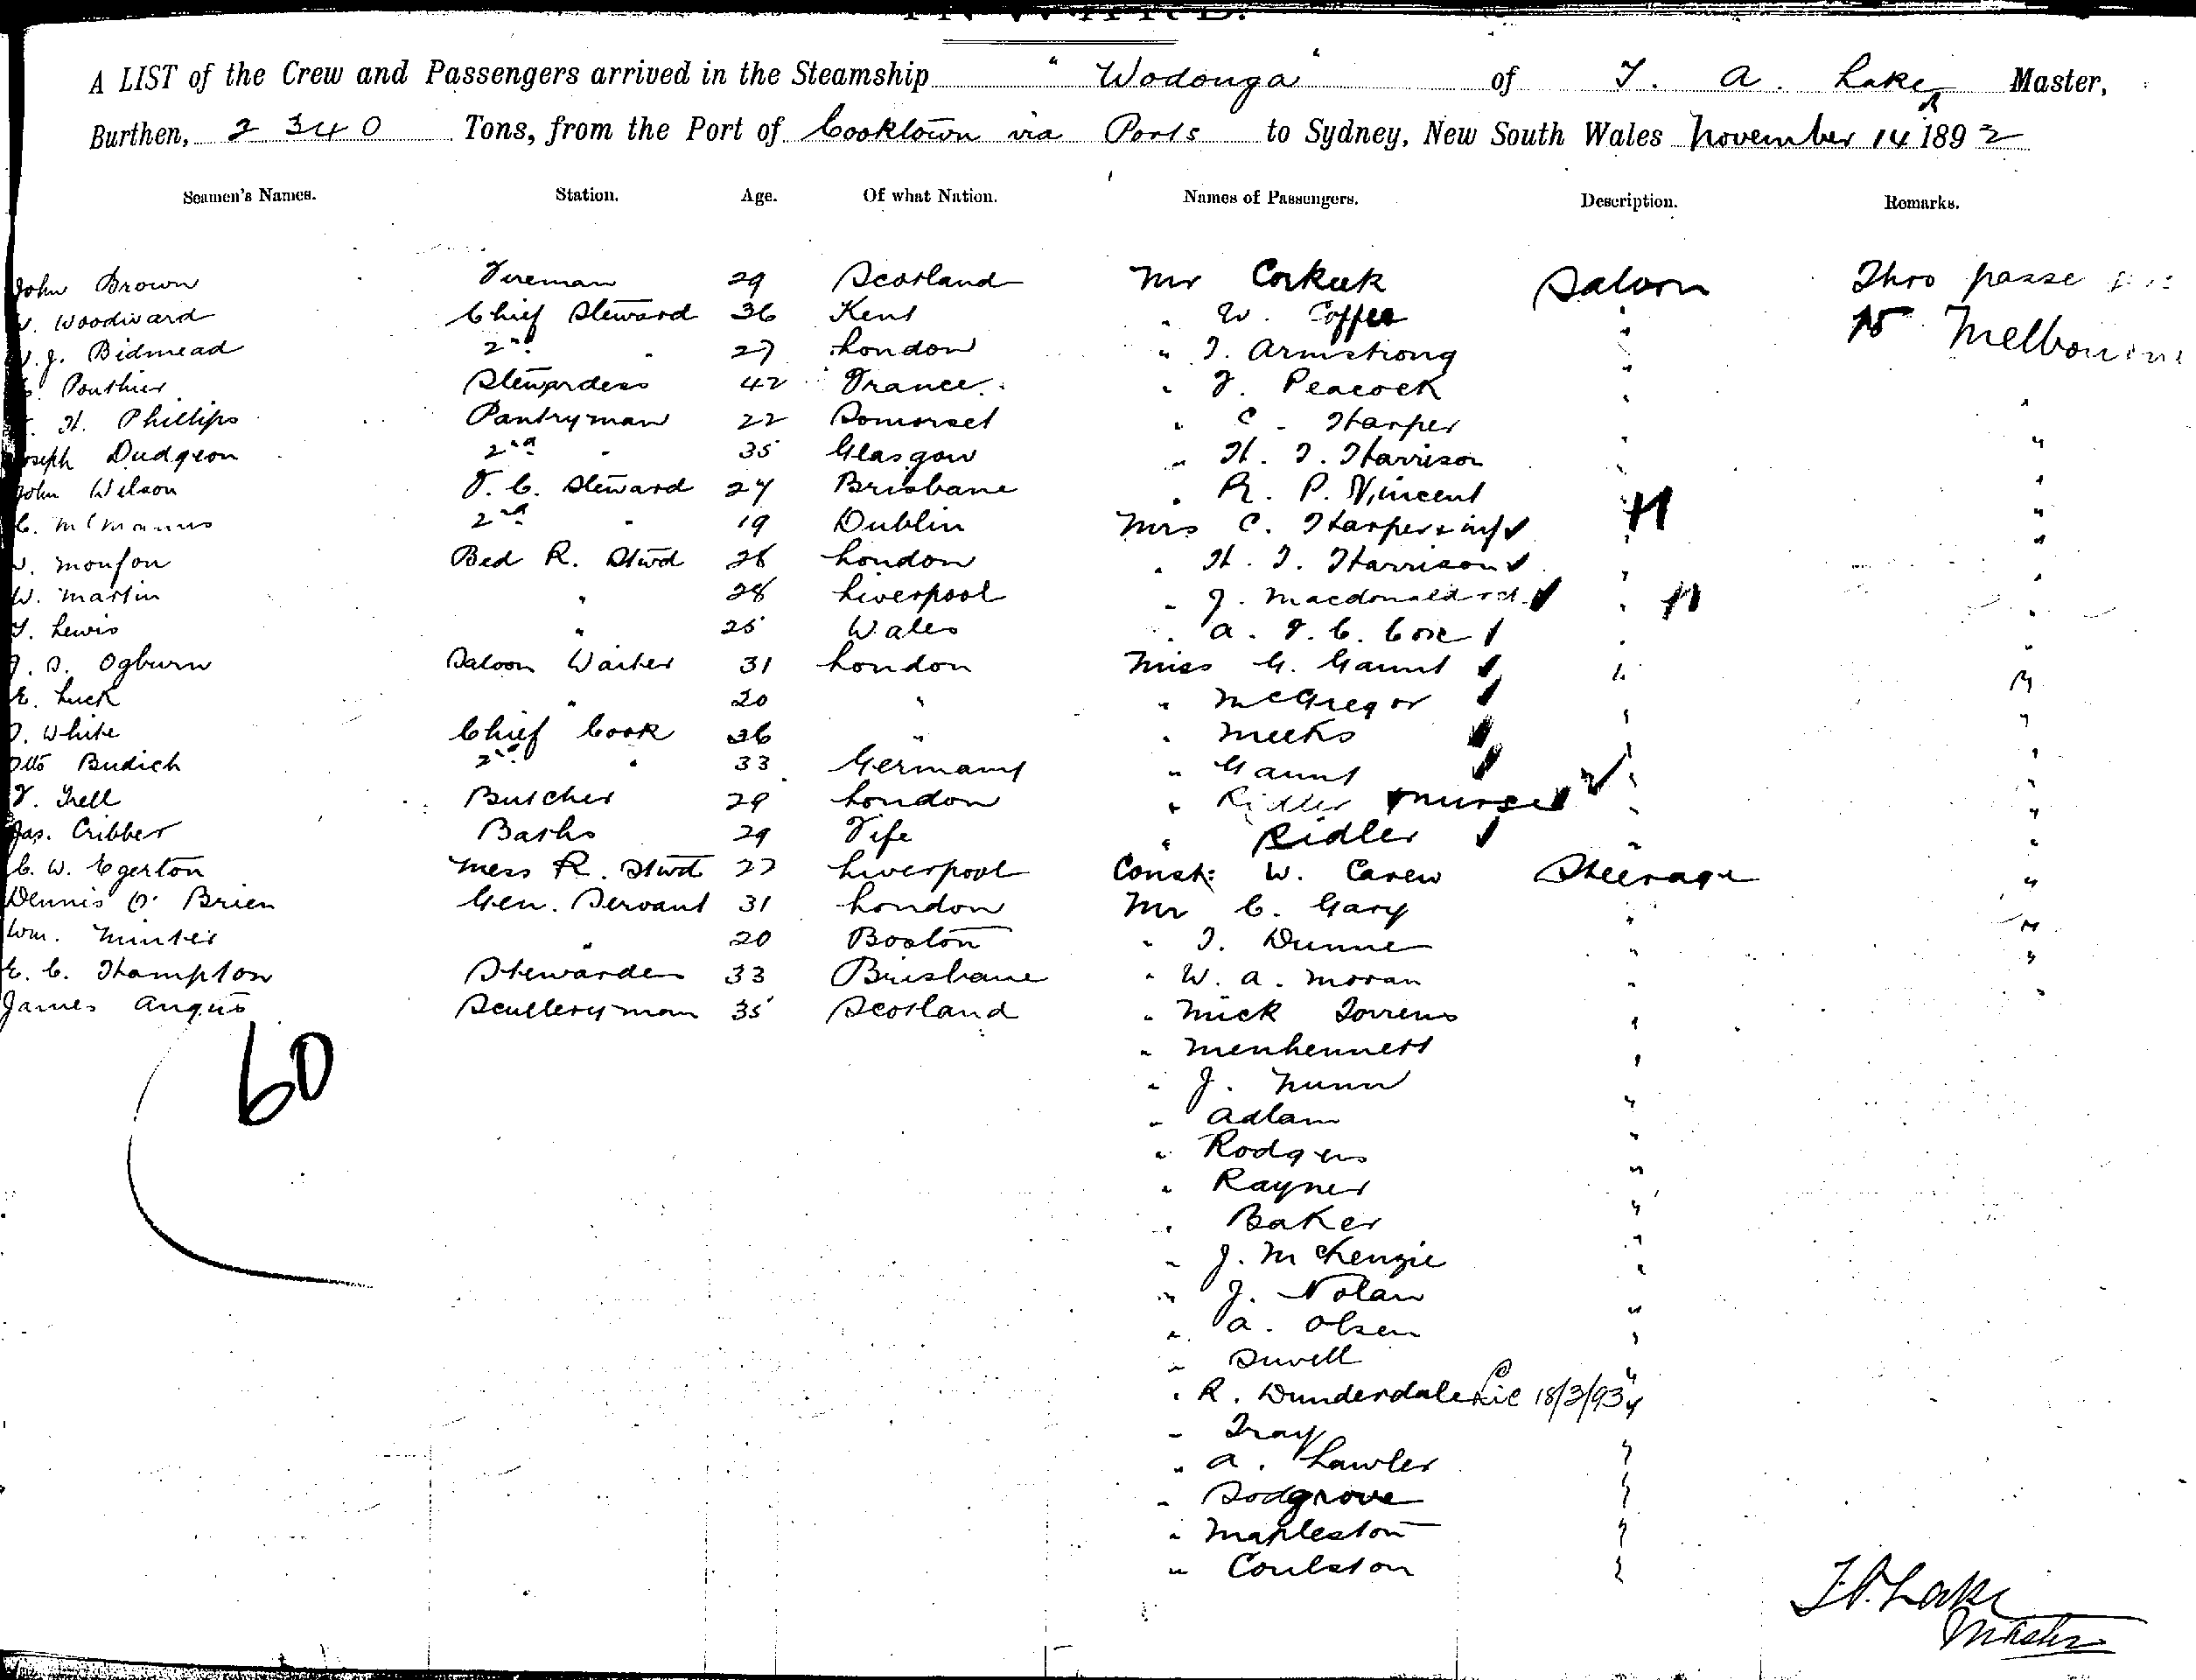 INWARD.
A LIST of the Crew and Passengers arrived in the Steamship "Wodonga" of T. A. Lake Master,
Burthen, 2340 Tons, from the Port of Cooktown via Ports to Sydney, New South Wales November 14 1892
Seamen's Names. Station. Age. Of what Nation. Names of Passengers. Description. Remarks.
John Brown Fireman 29 Scotland Mr Corkeek Saloon Thro passe
Woodward Chief Steward 36 Kent " W. Coffee " to Melbourne
J. Bidmead 2nd " 27 London " T. Armstrong "
Pouthier Stewardess 42 France " F. Peacock "
H. Phillips Pantryman 22 Somerset " C. Harper " "
Joseph Dudgeon 2nd " 35 Glasgow " H. T. Harrison " "
John Wilson F. C. Steward 24 Brisbane " R. P. Vincent " "
C. McManus 2nd " 19 Dublin Mrs C. Harper & inf " "
Moufon Bed R. Stwd 28 London " H. T. Harrison " "
W. Martin " 28 Liverpool " J. Macdonald " "
T. Lewis " 25 Wales " A. F. C. Coxe " "
Ogburn Saloon Waiter 31 London Miss G. Gaunt " "
E. Luck " 20 " " McGregor " "
White Chief Cook 36 " " Meeks " "
Otto Budich 2nd " 33 Germany " Gaunt " "
F. Trell Butcher 29 London " Ridler & nurse " "
Jas. Cribber Baths 29 Fife " Ridler " "
C. W. Egerton Mess R. Stwd 27 Liverpool Const: W. Carew Steerage "
Dennis O'Brien Gen. Servant 31 London Mr C. Gary " "
Wm. Minter " 20 Boston " T. Dunne " "
E. C. Hampton Stewardess 33 Brisbane " W. A. Moran " "
James Angus Sculleryman 35 Scotland " Mick Torrens "
60
" Menhennett "
" J. Nunn "
" Adlam "
" Rodgers "
" Rayner "
" Baker "
" J. McKenzie "
" J. Nolan "
" A. Olsen "
" Suvell "
" R. Dunderdale Lic 18/3/93 "
" Tray "
" A. Lawler "
" Sodgrove "
" Mapleston "
" Coulston "
T. A. Lake
Master